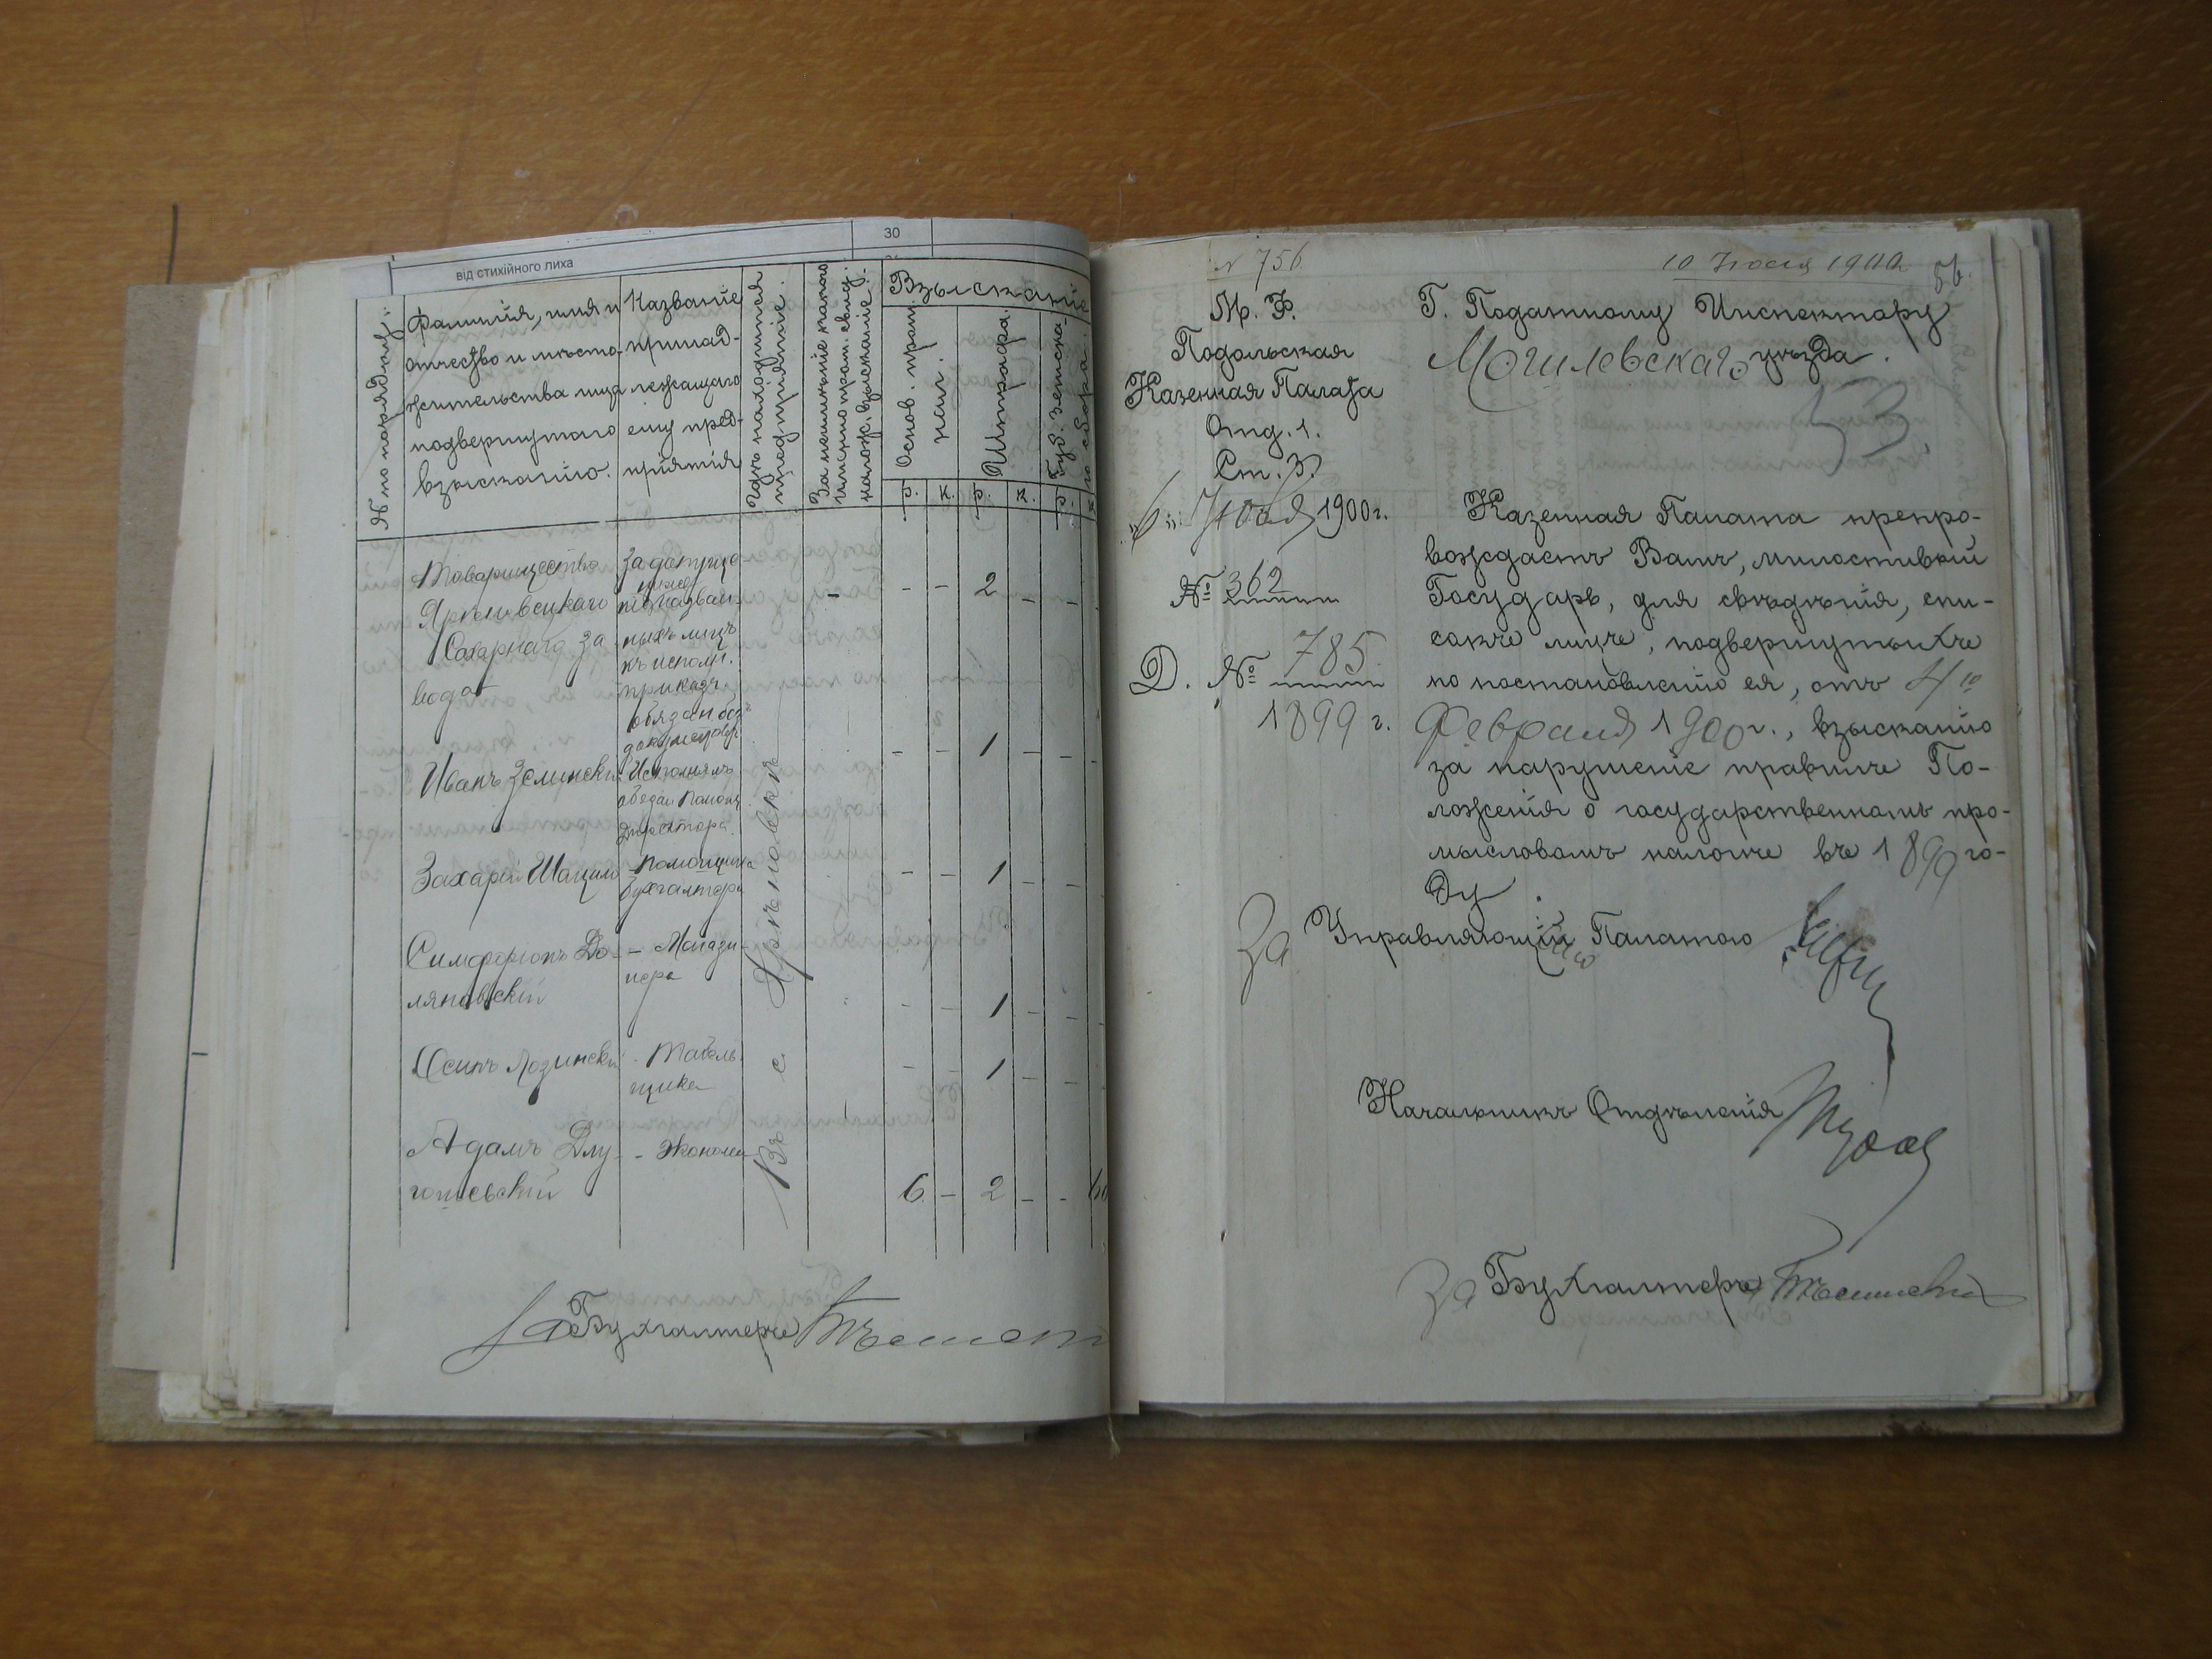 30
від стихійного лиха
№ по порядку.
Фамилія, имя и
отчество и мѣсто
жительства лица
подвергнутаго
взысканію.
Названіе
принад-
лежащаго
ему пред-
пріятія
Гдѣ находится
предпріятіе.
За неимѣніе какого
именно пром. свид.
налож. взысканіе.
Взысканіе
Основ. пром.
нал.
Штрафа.
Гуд. земска-
го сбора.
р. к. р. к. р.
Товарищество
Ярышевскаго
Сахарнаго За
вода
за допуще
ніе назван
ныхъ лицъ
къ исполн.
приказч.
обязан без
документов
- - 2 - -
Иванъ Зелински
Исполнялъ
обязан помощ
Директора.
- - 1 - -
Захарій Шацило
- Помощника
бухгалтера
- - 1 - -
Симфоріонъ До-
ляновскій
- Магази-
нера
- - 1 - -
Осипъ Лозински
- Табель-
щика
- - 1 - -
Адамъ Длу-
гошевскій
- Эконома
6 - 2 - - 60
Въ с.
За Бухгалтеръ
№ 756
10 Іюля 1900
56.
М. Ф.
Подольская
Казенная Палата
Отд. 1.
Ст. 3.
„6" Іюля 1900 г.
№ 362
Д. № 785
1899 г.
Г. Податному Инспектору
Могилевскаго уѣзда.
53.
Казенная Палата препро-
вождаетъ Вамъ, милостивый
Государь, для свѣдѣнія, спи-
сокъ лицъ, подвергнутыхъ
по постановленію ея, отъ 4го
Февраля 1900 г., взысканію
за нарушеніе правилъ По-
ложенія о государственномъ про-
мысловомъ налогѣ въ 1899 го-
ду.
За Управляющій Палатою
Начальникъ Отдѣленія
За Бухгалтеръ